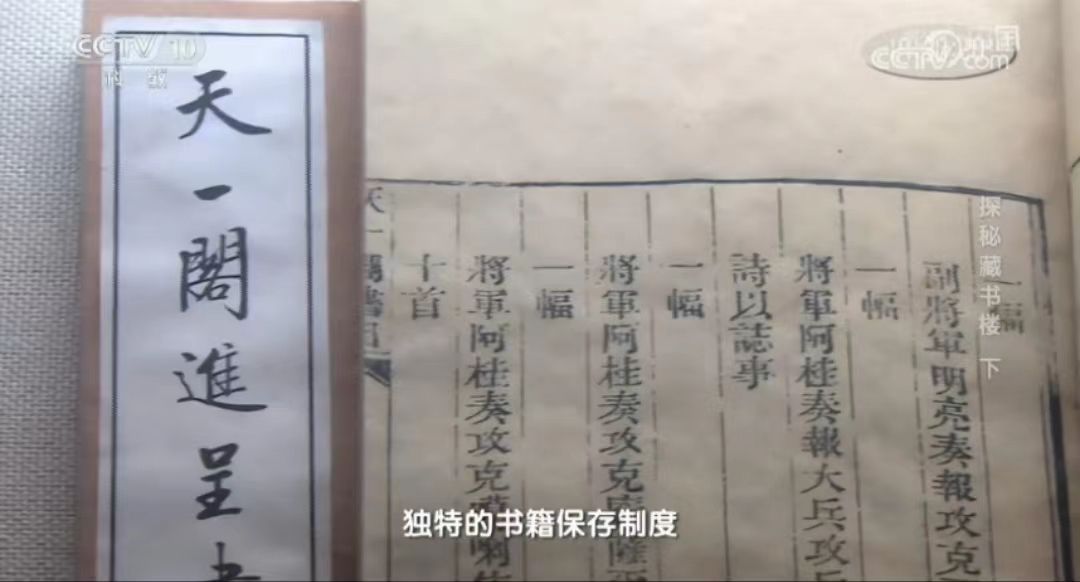 CCTV 10
科教
CCTV.com
天一閣進呈
探秘藏书楼 下
一幅
副將軍明亮奏報攻克
一幅
將軍阿桂奏報大兵攻
詩以誌事
一幅
將軍阿桂奏攻克
一幅
將軍阿桂奏攻克
十首
独特的书籍保存制度